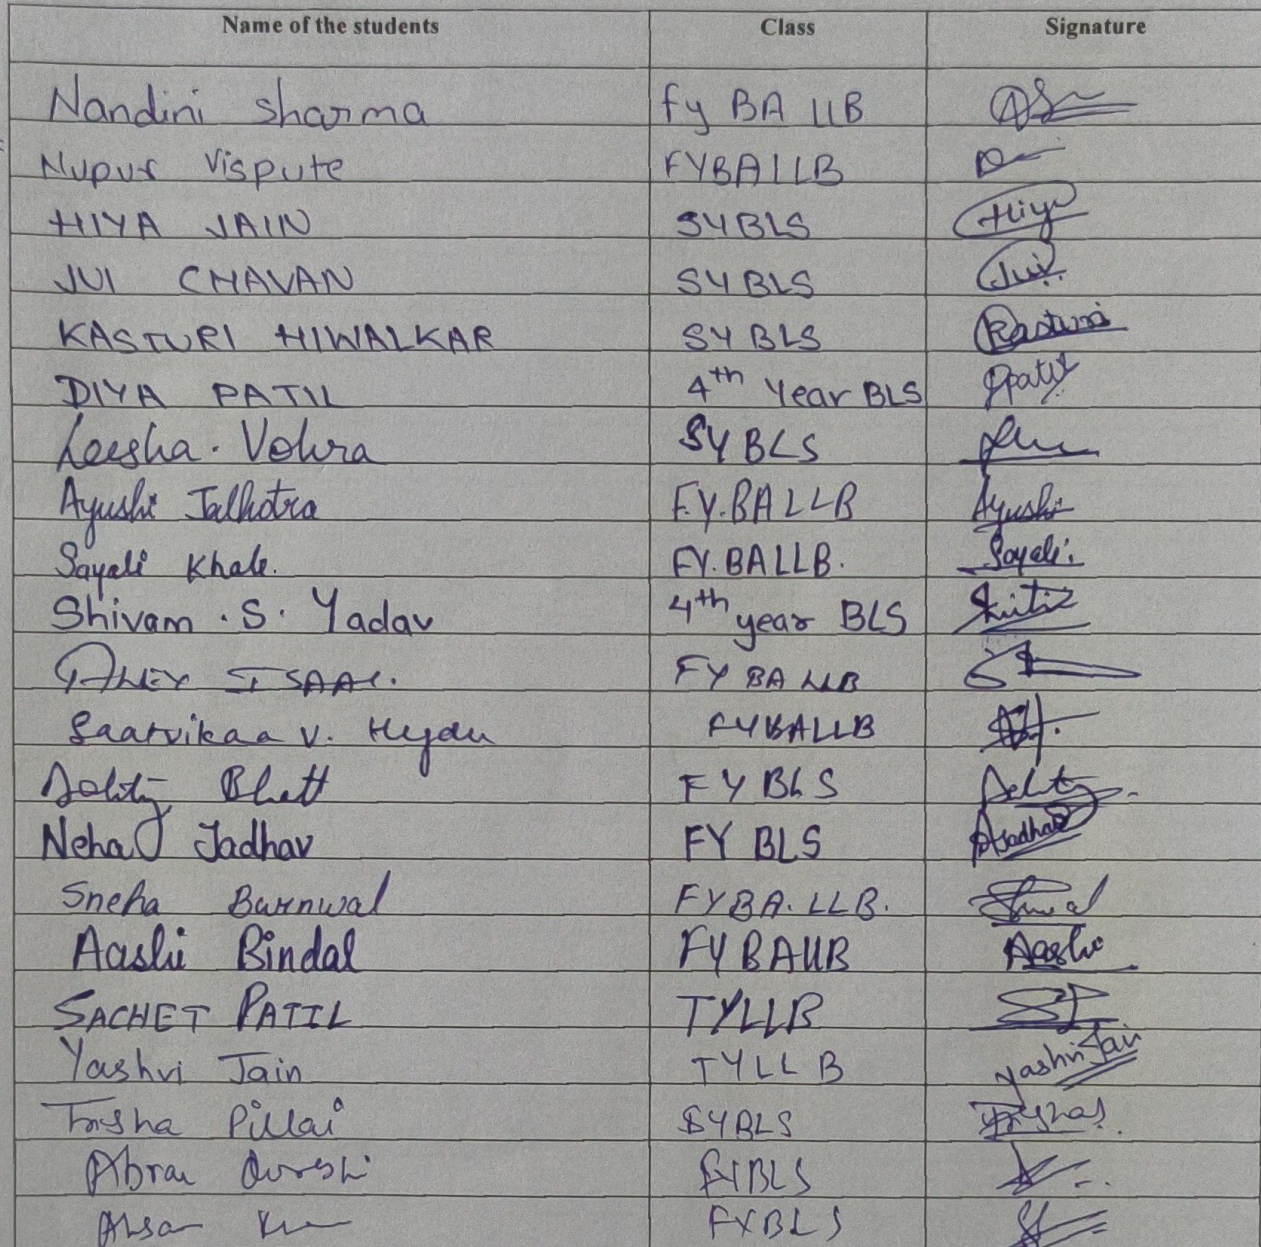 Name of the students Class Signature
Nandini Sharma Fy BA LLB
Nupur Vispute FYBALLB
HIYA JAIN SYBLS Hiya
JUI CHAVAN SYBLS Jui
KASTURI HIWALKAR SYBLS Kasturi
DIYA PATIL 4th Year BLS Dpatil
Leesha. Vohra SYBLS
Ayushi Jalhotra F.Y.BALLB Ayushi
Sayali Khale. FY.BALLB. Sayali.
Shivam . S. Yadav 4th year BLS
ISAAC. FY BA LLB
Saatvikaa V. FYBALLB
Bhatt FY BLS
Neha Jadhav FY BLS Jadhav
Sneha Burnwal FYBA.LLB.
Aashi Bindal FY BALLB Aashi
SACHET PATIL TYLLB
Yashvi Jain TYLLB Yashvi Jain
Trisha Pillai SYBLS Trisha
FYBLS
FYBLS